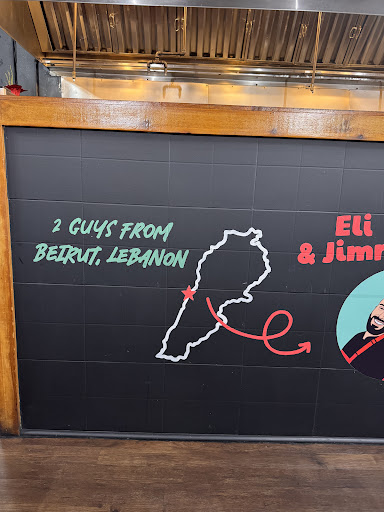 2 GUYS FROM
BEIRUT, LEBANON
Eli
& Jimm